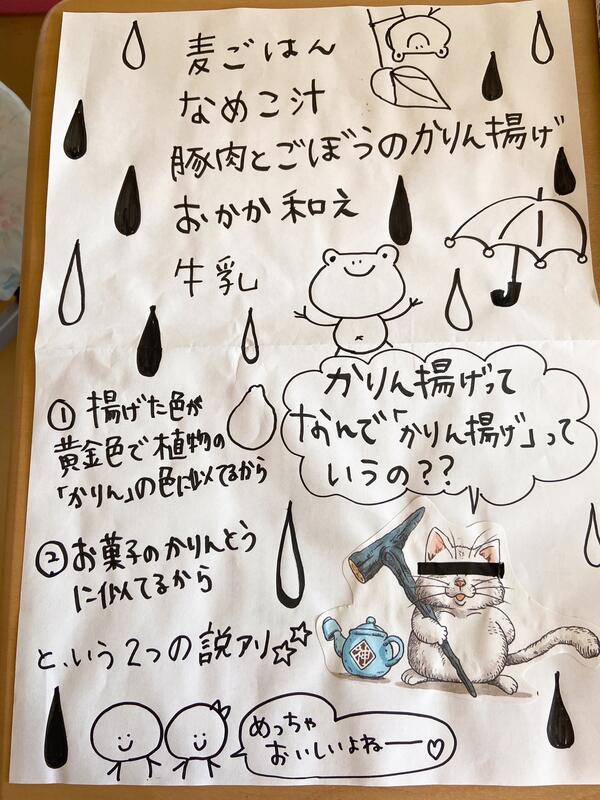 麦ごはん
なめこ汁
豚肉とごぼうのかりん揚げ
おかか和え
牛乳
かりん揚げって
なんで「かりん揚げ」って
いうの??
① 揚げた色が
黄金色で植物の
「かりん」の色に似てるから
② お菓子のかりんとう
に似てるから
と、いう2つの説アリ☆☆
神
めっちゃ
おいしいよねー♡